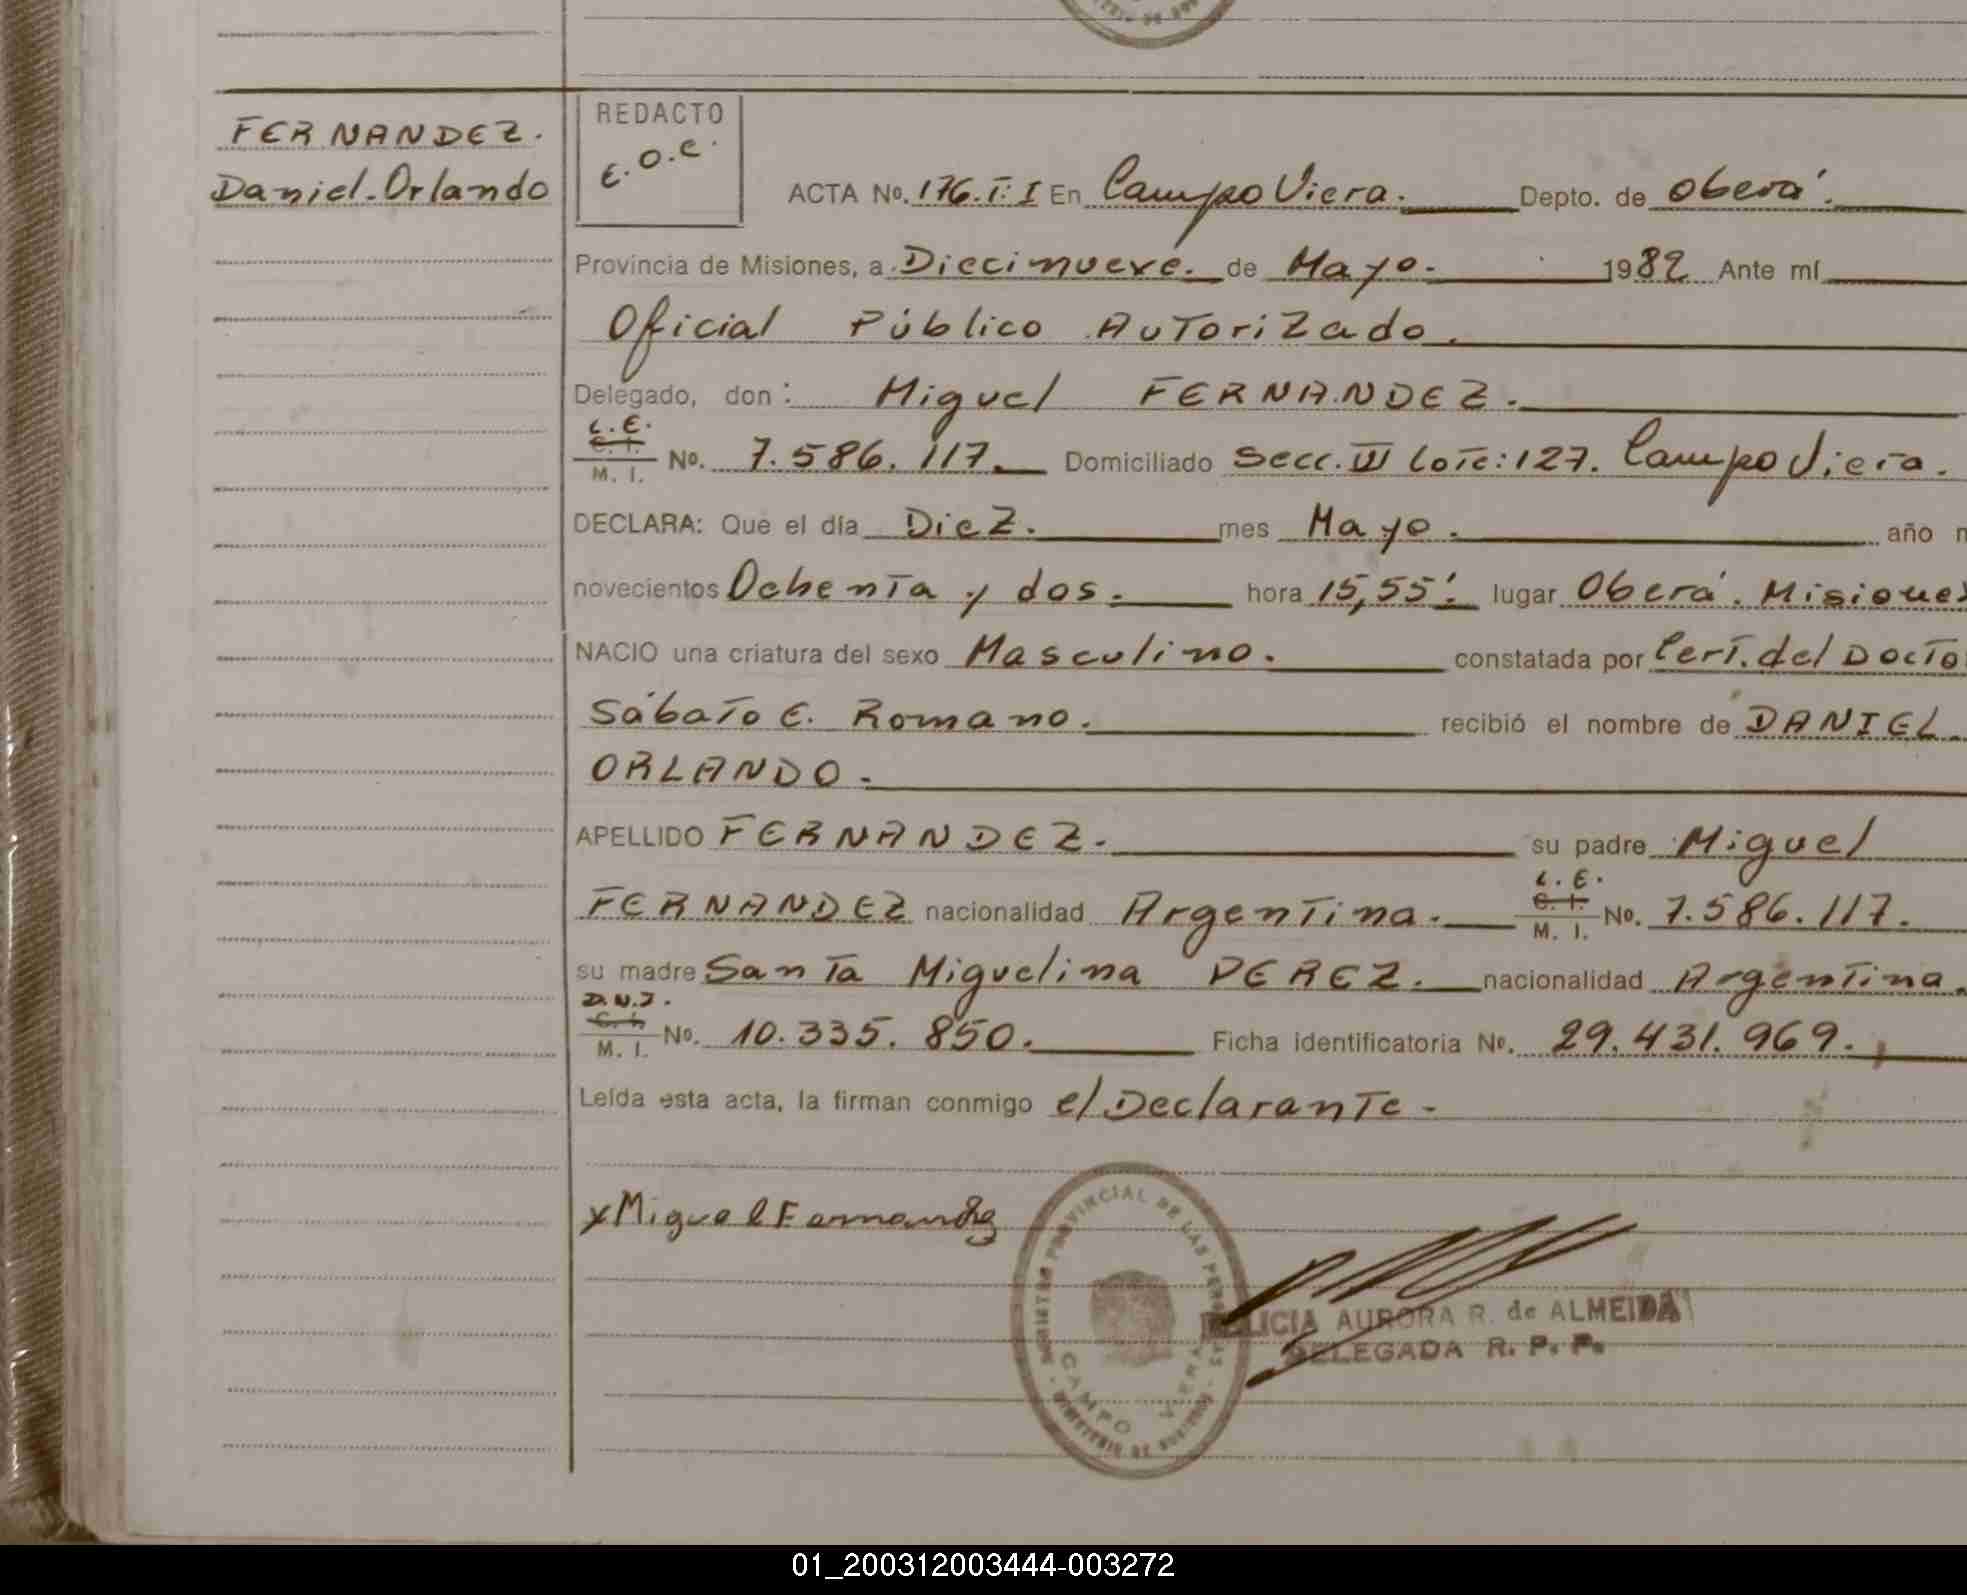 FERNANDEZ.
Daniel-Orlando
REDACTO
E.O.C.
ACTA No. 176.T:I En Campo Viera. Depto. de Oberá.
Provincia de Misiones, a Diecinueve. de Mayo. 1982 Ante mí
Oficial Público Autorizado.
Delegado, don: Miguel FERNANDEZ.
L.E.
C. I.
M. I. No. 7.586.117. Domiciliado Secc. III Lote:127. Campo Viera.
DECLARA: Que el día Diez. mes Mayo. año
novecientos Ochenta y dos. hora 15,55'. lugar Oberá. Misiones
NACIO una criatura del sexo Masculino. constatada por Cert. del Docto
Sábato E. Romano. recibió el nombre de DANIEL
ORLANDO.
APELLIDO FERNANDEZ. su padre Miguel
FERNANDEZ nacionalidad Argentina. L.E. C. I. M. I. No. 7.586.117.
su madre Santa Miguelina PEREZ. nacionalidad Argentina.
D.N.I.
C. I.
M. I. No. 10.335.850. Ficha identificatoria No. 29.431.969.
Leída esta acta, la firman conmigo el Declarante-
x Miguel Fernandez
REGISTRO PROVINCIAL DE LAS PERSONAS
CAMPO VIERA
FELICIA AURORA R. de ALMEIDA
DELEGADA R. P. P.
01_200312003444-003272